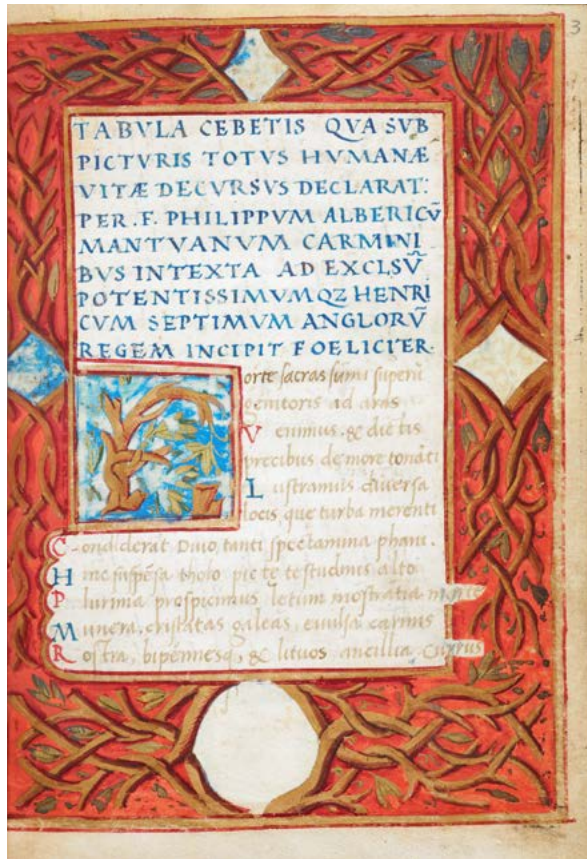 3
TABVLA CEBETIS QVA SVB
PICTVRIS TOTVS HVMANÆ
VITÆ DECVRSVS DECLARAT:
PER. F. PHILIPPVM ALBERICŪ
MANTVANVM CARMINI
BVS INTEXTA AD EXCLSŪ
POTENTISSIMVMQZ HENRI
CVM SEPTIMVM ANGLORŪ
REGEM INCIPIT FOELICITER.
Forte sacras sūmi superū
genitoris ad aras
Venimus. &
precibus de more
Lustramus diversa
locis, que turba merenti
Condiderat Divo, tanti spectamina phani.
Hinc suspēsa tholo
Plurima prospicimus letum mōstrātia
Munera, cristatas galeas, carinis
Rostra, bipēnnesq, & lituos ancillia currus